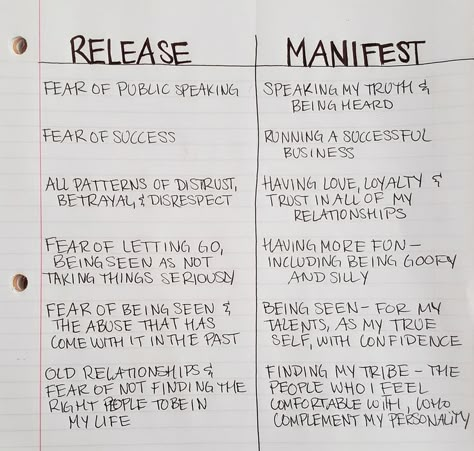 RELEASE
MANIFEST
FEAR OF PUBLIC SPEAKING
SPEAKING MY TRUTH &
BEING HEARD
FEAR OF SUCCESS
RUNNING A SUCCESSFUL
BUSINESS
ALL PATTERNS OF DISTRUST,
BETRAYAL, & DISRESPECT
HAVING LOVE, LOYALTY &
TRUST IN ALL OF MY
RELATIONSHIPS
FEAR OF LETTING GO,
BEING SEEN AS NOT
TAKING THINGS SERIOUSLY
HAVING MORE FUN –
INCLUDING BEING GOOFY
AND SILLY
FEAR OF BEING SEEN &
THE ABUSE THAT HAS
COME WITH IT IN THE PAST
BEING SEEN – FOR MY
TALENTS, AS MY TRUE
SELF, WITH CONFIDENCE
OLD RELATIONSHIPS &
FEAR OF NOT FINDING THE
RIGHT PEOPLE TO BE IN
MY LIFE
FINDING MY TRIBE – THE
PEOPLE WHO I FEEL
COMFORTABLE WITH, WHO
COMPLEMENT MY PERSONALITY